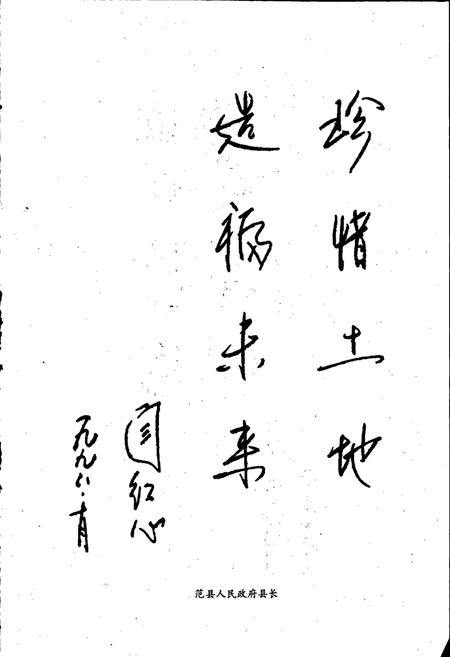 珍惜土地
造福未来
闫红心
一九九
范县人民政府县长